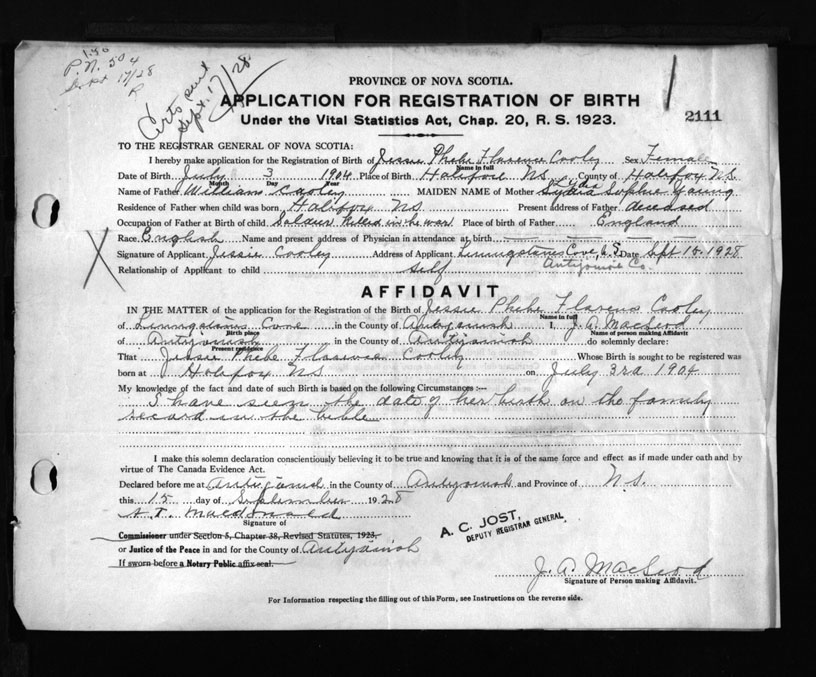 1.50
P.N. 504
Sept 17/28
R
Certs sent
Sept. 17/28
PROVINCE OF NOVA SCOTIA.
APPLICATION FOR REGISTRATION OF BIRTH
2111
Under the Vital Statistics Act, Chap. 20, R. S. 1923.
TO THE REGISTRAR GENERAL OF NOVA SCOTIA:
I hereby make application for the Registration of Birth of Jessie Phebe Florence Cooley Sex Female
Name in full
Date of Birth July 3 1904 Place of Birth Halifax NS County of Halifax NS
Month Day Year
Name of Father William Cooley MAIDEN NAME of Mother Lydia Sophie Young
Residence of Father when child was born Halifax NS Present address of Father deceased
Occupation of Father at Birth of child Soldier killed in the war Place of birth of Father England
Race English Name and present address of Physician in attendance at birth
Signature of Applicant Jessie Cooley Address of Applicant Livingstones Cove, N.S. Date Sept 15, 1928
Relationship of Applicant to child self Antigonish Co.
AFFIDAVIT
IN THE MATTER of the application for the Registration of Birth of Jessie Phebe Florence Cooley
Name in full
of Livingstons Cove in the County of Antigonish I, J. A. MacLeod
Birth place Name of person making Affidavit
of Antigonish in the County of Antigonish do solemnly declare:
Present residence
That Jessie Phebe Florence Cooley Whose Birth is sought to be registered was
born at Halifax NS on July 3rd 1904
My knowledge of the fact and date of such Birth is based on the following Circumstances:—
I have seen the date of her birth on the family
record in the bible
I make this solemn declaration conscientiously believing it to be true and knowing that it is of the same force and effect as if made under oath and by
virtue of The Canada Evidence Act.
Declared before me at Antigonish in the County of Antigonish and Province of N.S.
this 15 day of September 1928
A. T. MacDonald
Signature of
Commissioner under Section 5, Chapter 38, Revised Statutes, 1923,
or Justice of the Peace in and for the County of Antigonish
If sworn before a Notary Public affix seal.
A. C. JOST,
DEPUTY REGISTRAR GENERAL
J. A. MacLeod
Signature of Person making Affidavit.
For Information respecting the filling out of this Form, see Instructions on the reverse side.